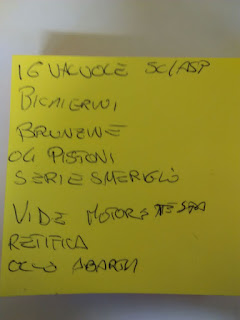 16 VALVOLE SC/ASP
BICHIERINI
BRONZINE
04 PISTONI
SERIE SMERIGLIO
VIDE MOTORE TESTA
RETIFICA
OLIO ABARTH